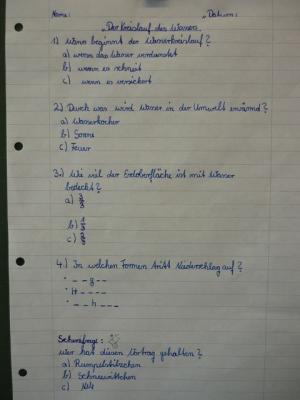 Name: Datum:
"Der Kreislauf des Wassers
1) Wann beginnt der Wasserkreislauf?
a) wenn das Wasser verdunstet
b) wenn es schneit
c) wenn es versickert
2.) Durch was wird Wasser in der Umwelt erwärmt?
a) Wasserkocher
b) Sonne
c) Feuer
3.) Wie viel der Erdoberfläche ist mit Wasser
bedeckt?
a)
b)
c)
4.) In welchen Formen tritt Niederschlag auf?
· _ _ g _ _
· H _ _ _ _
· _ _ h _ _ _
Scherzfrage:
Wer hat diesen Vortrag gehalten?
a) Rumpelstilzchen
b) Schneewittchen
c)